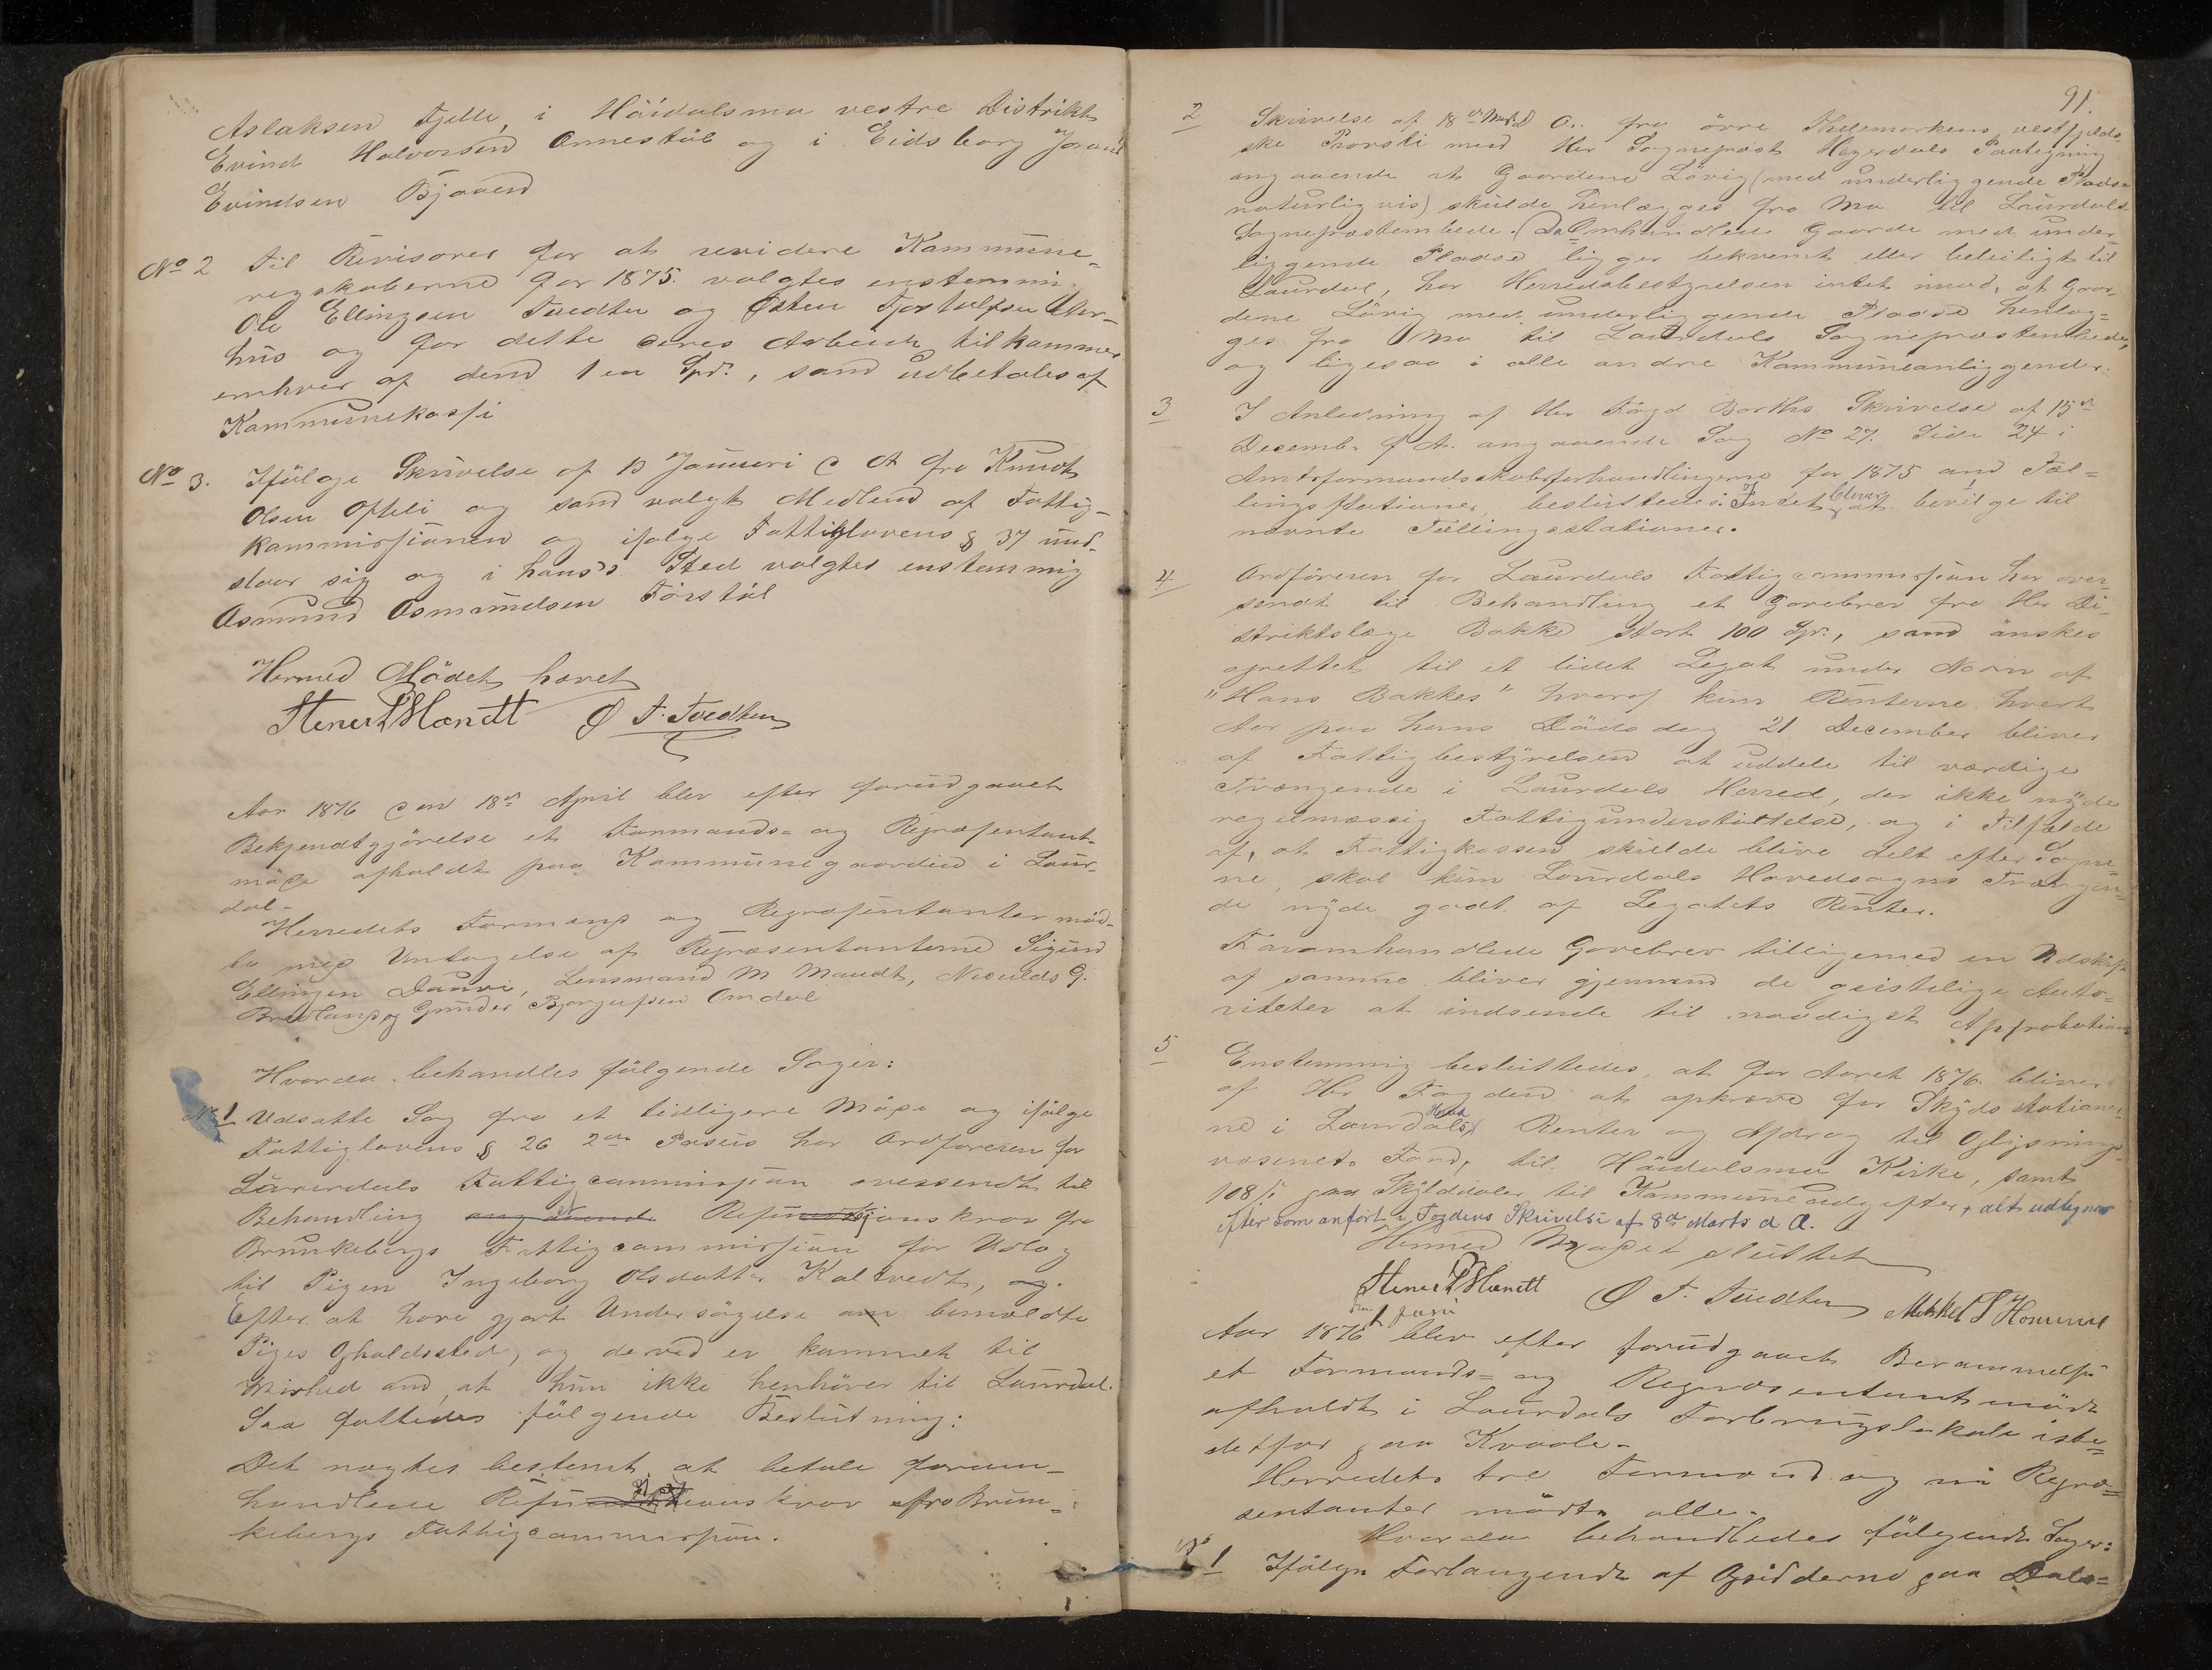 Aslaksen Fjelle, i Höidalsmo vestre Distrikt
Evind Halvorsen Ormestöl og i Eidsborg
Evindsen Bjaaen
No 2 Til Revisorer for at revidere Kommune-
regskaberne for 1875 valgtes enstemmi
Ole Ellingsen Tvedten og Østen Tjostulfsen
hus og for dette deres Arbeide tilkommer
enhver af dem 1 en Spd., som udbetales af
Kommunekassi
No 3. Ifölge Skrivelse af 13 Januari d A fra Knudt
Olsen Ofteli og som valgt Medlem af Fattig-
kommissionen og ifolge Fattiglovens § 37 und-
slaar sig og i hans's Sted valgtes enstemmig
Asmund Osmundsen Förstöl
Hermed Mödet hævet
Stener S Mandt Ø T. Tvedten
Aar 1876 den 18de April blev efter forudgaaet
Bekjendtgjörelse et Formands- og Repræsentant-
möde afholdt paa Kommunegaarden i Laur-
dal-
Herredets Formænd og Repræsentanter möd-
te med Undtagelse af Repræsentanterne Sigund
Ellingsen Dauvi, Lensmand M Mandt, Neoulds G.
og Gunder Bjorgufsen Omdal
Hvorda behandles fölgende Sager:
No 1 Udsatte Sag fra et tidligere Möde og ifölge
Fattiglovens § 26 2den Passus har Ordföreren for
Laurdals Fattigcommission oversendt til
Behandling angaaende et Refusjonskrav fra
Brunkebergs Fattigcommission for Udlæg
til Pigen Ingeborg Olsdatter Kaltvedt, og.
Efter at have gjort Undersögelse om bemældte
Piges Opholdssted, og derved er kommet til
Vished om, at hun ikke henhörer til Laurdal.
Saa fattedes fölgende Beslutning:
Det nægtes bestemt at betale forom-
handlede Refusionskrav fra Brun-
kebergs Fattigcommission.
91.
2 Skrivelse af 18de Marts d A. fra övre Thelemarkens vestfjeld-
ske Provsti med Her Sognepræst Høyerdals Paategning
angaaende at Gaardene Lövig (med underliggende Pladse
naturligvis) skulde henlægges fra Mo til Laurdals
Sognepræstembede. Da Omhandlede Gaarde med under
liggende Pladse ligger bekvemt eller beleiligt til
Laurdal, har Herredsbestyrelsen intet imod, at Gaar-
dene Lövig med underliggende Pladse henlæg-
ges fra Mo til Laurdals Sognepræstembede,
og ligesaa i alle andre Kommuneanliggender.
3 I Anledning af Her Fogd Barths Skrivelse af 15de
Decembr f A. angaaende Sag No 27. Side 24 i
Amtsformandsskabsforhandlingerne for 1875 om Tæl-
lingsstationer, besluttedes: Intet bliver at bevilge til
nævnte Tællingsstationer.
4 Ordföreren for Laurdals Fattigcommission har over-
sendt til Behandling et Gavebrev fra Her Di-
striktslæge Bakke stort 100 Spd., som önskes
oprettet til et lidet Legat under Navn af
"Hans Bakkes" hvoraf kun Renterne hvert
Aar paa hans Dödsdag 21 December bliver
af Fattigbestyrelsen at uddele til værdige
Trængende i Laurdals Herred, der ikke nyder
regelmæssig Fattigunderstöttelse, og i Tilfælde
af, at Fattigkassen skulde blive delt efter Sogne-
ne, skal kun Laurdals Hovedsogns Trængen-
de nyde godt af Legatets Renter.
Foromhandlede Gavebrev tilligemed en Udskrift
af samme bliver gjennem de geistelige Auto-
riteter at indsende til naadigst Approbation
5 Enstemmig besluttedes, at for Aaret 1876. bliver
af Her Fogden at opkræve for Skydsstationer-
ne i Laurdals Renter og Afdrag til Oplysnings-
væsenets Fond, til Höidalsmo Kirke, samt
108 s. paa Skylddaler til Kommuneudgifter, alt udlignes
efter som anfört i Fogdens Skrivelse af 8de Marts d A.
Hermed Mødet sluttet
Stener S Mandt Ø T. Tvedten Mikkel S Homme
Aar 1876 den 1 Juni blev efter forudgaaet Berammelse
et Formands- og Repræsentantmöde
afholdt i Laurdals Forligningslokale iste-
detfor paa Kraale-
Herredets tre Formænd og ni Repræ-
sentanter mödte alle-
Hvorda behandledes fölgende Sager:
No 1 Ifölge Forlangende af Opsidderne paa Dale-